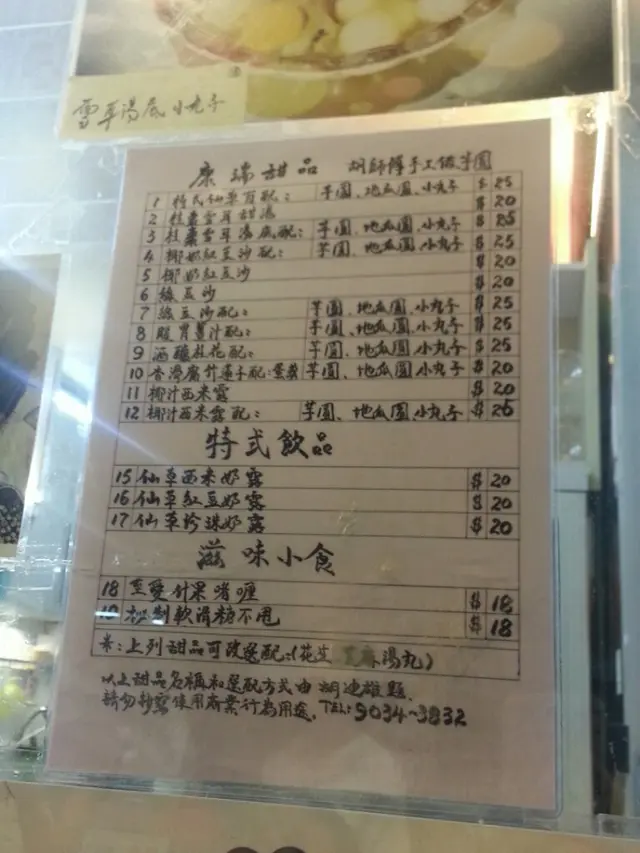 雪耳湯底小丸子
康瑞甜品 胡師傅手工做芋圓
1 特式仙草 配： 芋圓、地瓜圓、小丸子 $ 25
2 桂棗雪耳甜湯 $ 20
3 桂棗雪耳湯底配： 芋圓、地瓜圓、小丸子 $ 25
4 椰奶紅豆沙配： 芋圓、地瓜圓、小丸子 $ 25
5 椰奶紅豆沙 $ 20
6 綠豆沙 $ 20
7 綠豆沙配： 芋圓、地瓜圓、小丸子 $ 25
8 暖胃薑汁配： 芋圓、地瓜圓、小丸子 $ 25
9 酒釀桂花配： 芋圓、地瓜圓、小丸子 $ 25
10 香滑腐竹蓮子配： 芋圓、地瓜圓、小丸子 $ 20
11 椰汁西米露 $ 20
12 椰汁西米露配： 芋圓、地瓜圓、小丸子 $ 25
特式飲品
15 仙草西米奶露 $ 20
16 仙草紅豆奶露 $ 20
17 仙草珍珠奶露 $ 20
滋味小食
18 至愛什果啫喱 $ 18
秘制軟滑糖不甩 $ 18
米：上列甜品可改選配：(花生 湯丸)
以上甜品名稱和選配方式由胡迪雄題，
請勿抄襲使用商業行為用途。TEL：9034-3832